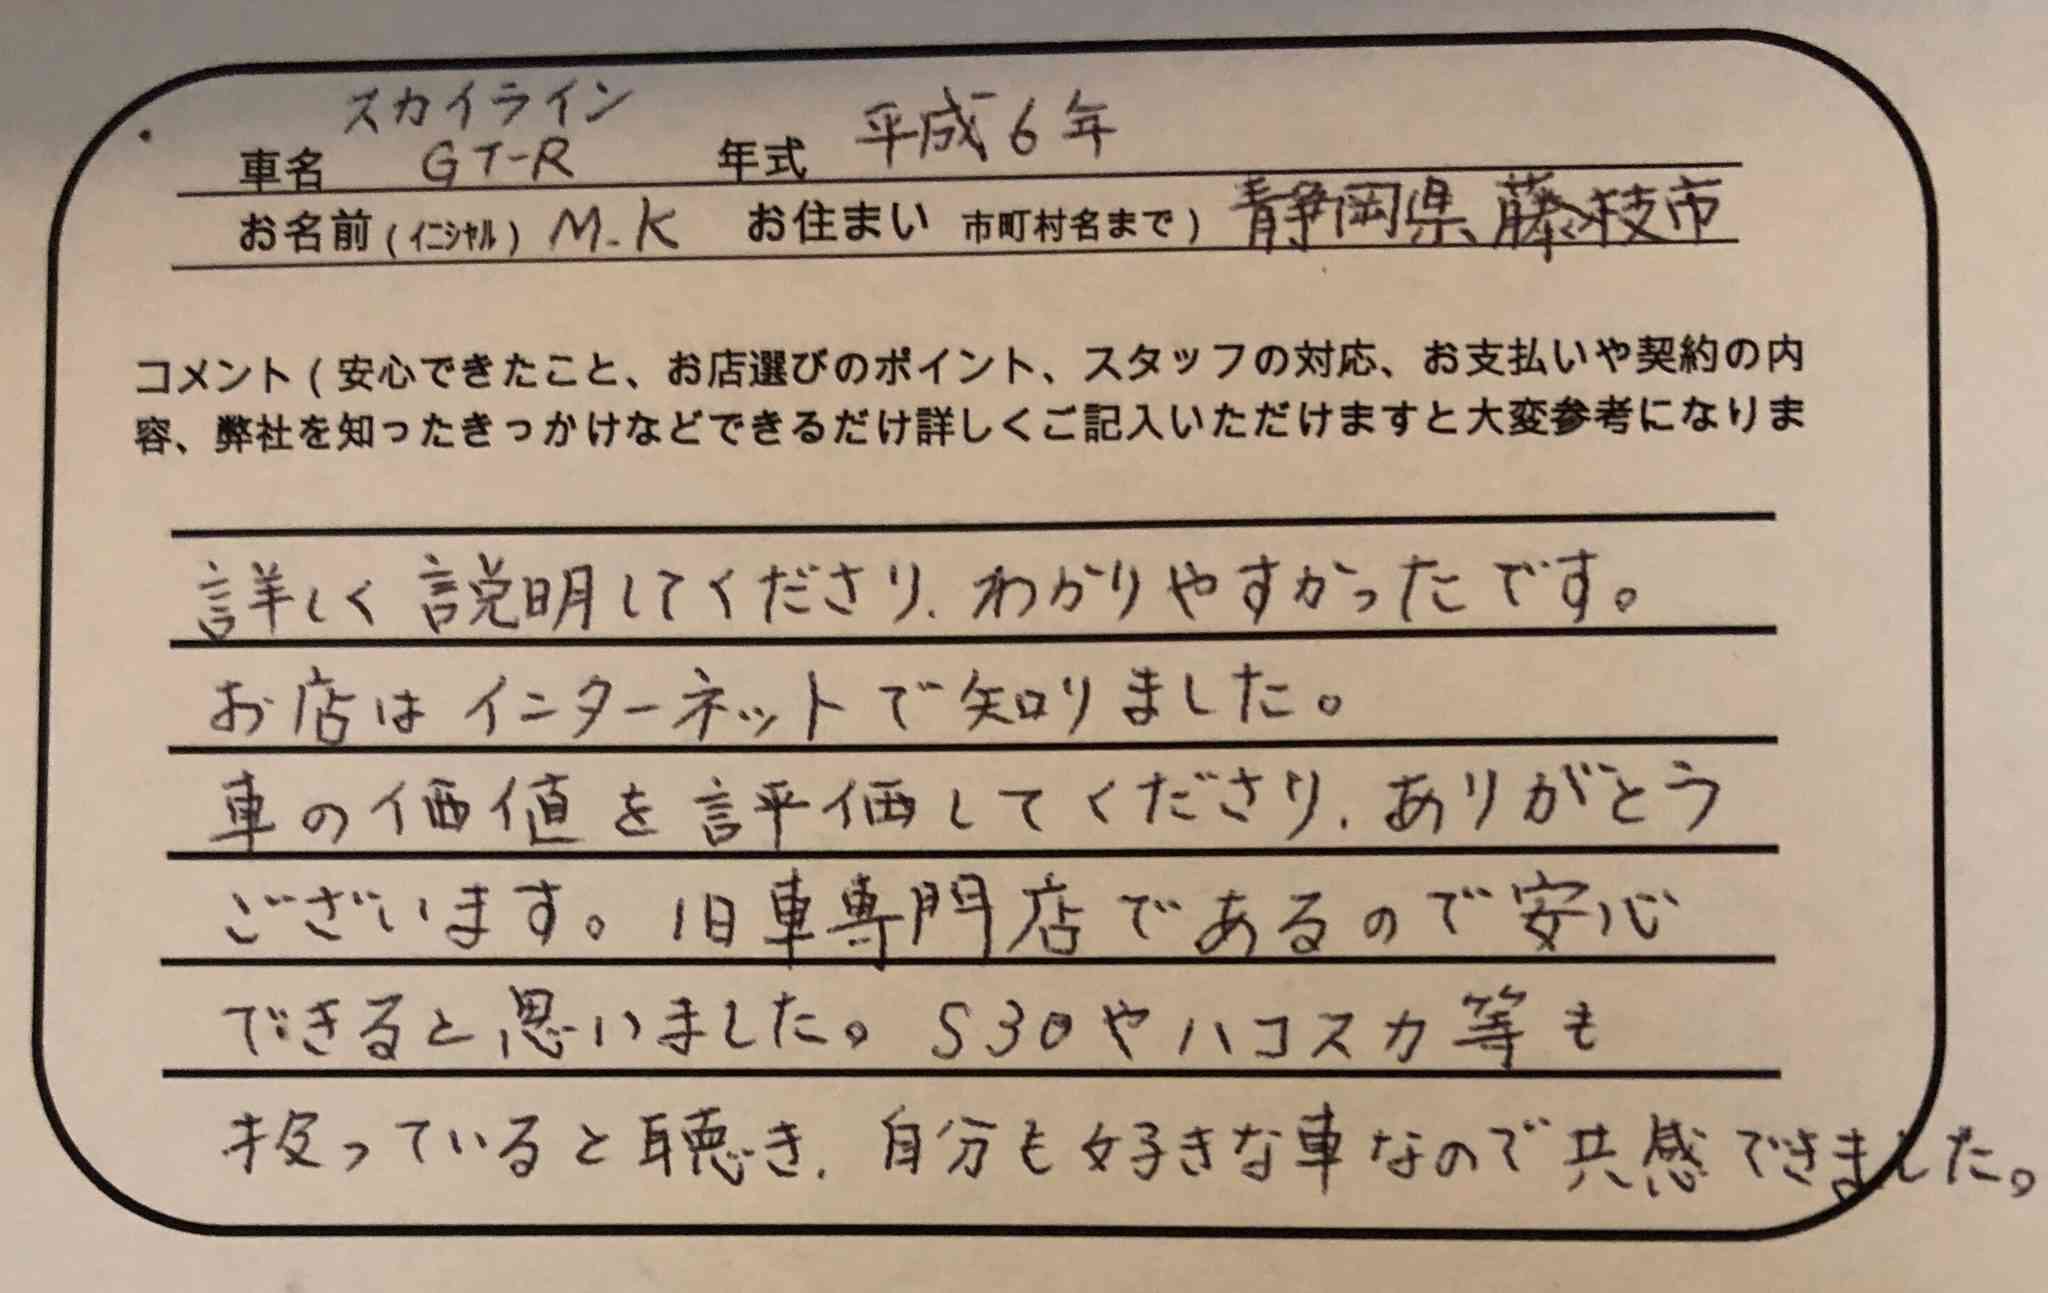 スカイライン
車名 GT-R 年式 平成6年
お名前(イニシャル) M.K お住まい 市町村名まで) 静岡県藤枝市
コメント(安心できたこと、お店選びのポイント、スタッフの対応、お支払いや契約の内
容、弊社を知ったきっかけなどできるだけ詳しくご記入いただけますと大変参考になりま
詳しく説明してくださり、わかりやすかったです。
お店はインターネットで知りました。
車の価値を評価してくださり、ありがとう
ございます。旧車専門店であるので安心
できると思いました。S30やハコスカ等も
扱っていると聴き、自分も好きな車なので共感できました。